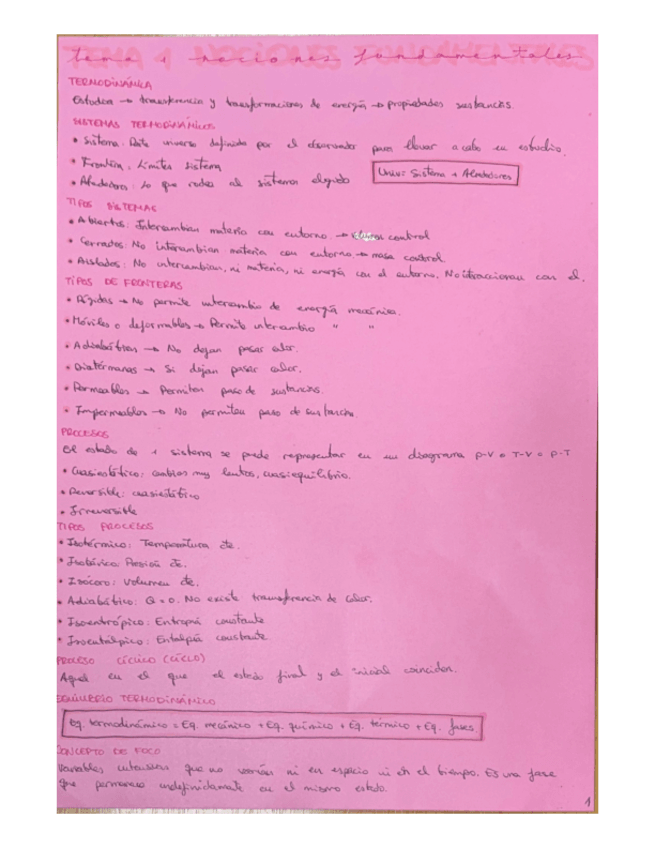 tema 1 nociones fundamentales
TERMODINÁMICA
Estudia → transferencia y transformaciones de energía → propiedades sustancias.
SISTEMAS TERMODINÁMICOS
• Sistema: Parte universo definida por el observador para llevar a cabo su estudio.
• Frontera: Límites sistema
• Alrededores: Lo que rodea al sistema elegido
Univ = Sistema + Alrededores
TIPOS SISTEMAS
• Abiertos: Intercambian materia con entorno. → control
• Cerrados: No intercambian materia con entorno → masa control
• Aislados: No intercambian, ni materia, ni energía con el entorno. No interaccionan con él.
TIPOS DE FRONTERAS
• Rígidas → No permite intercambio de energía mecánica.
• Móviles o deformables → Permite intercambio " "
• Adiabáticas → No dejan pasar calor.
• Diatérmanas → Sí dejan pasar calor.
• Permeables → Permiten paso de sustancias.
• Impermeables → No permiten paso de sustancias
PROCESOS
El estado de 1 sistema se puede representar en un diagrama P-V o T-V o P-T
• Cuasiestático: cambios muy lentos, cuasiequilibrio.
• Reversible: cuasiestático
• Irreversible
TIPOS PROCESOS
• Isotérmico: Temperatura cte.
• Isobárico: Presión cte.
• Isócoro: Volumen cte.
• Adiabático: Q = 0. No existe transferencia de calor.
• Isoentrópico: Entropía constante
• Isoentálpico: Entalpía constante
PROCESO CÍCLICO (CICLO)
Aquel en el que el estado final y el inicial coinciden.
EQUILIBRIO TERMODINÁMICO
Eq. termodinámico = Eq. mecánico + Eq. químico + Eq. térmico + Eq. fases
CONCEPTO DE FOCO
Variables intensivas que no varían ni en espacio ni en el tiempo. Es una fase
que permanece indefinidamente en el mismo estado.
1